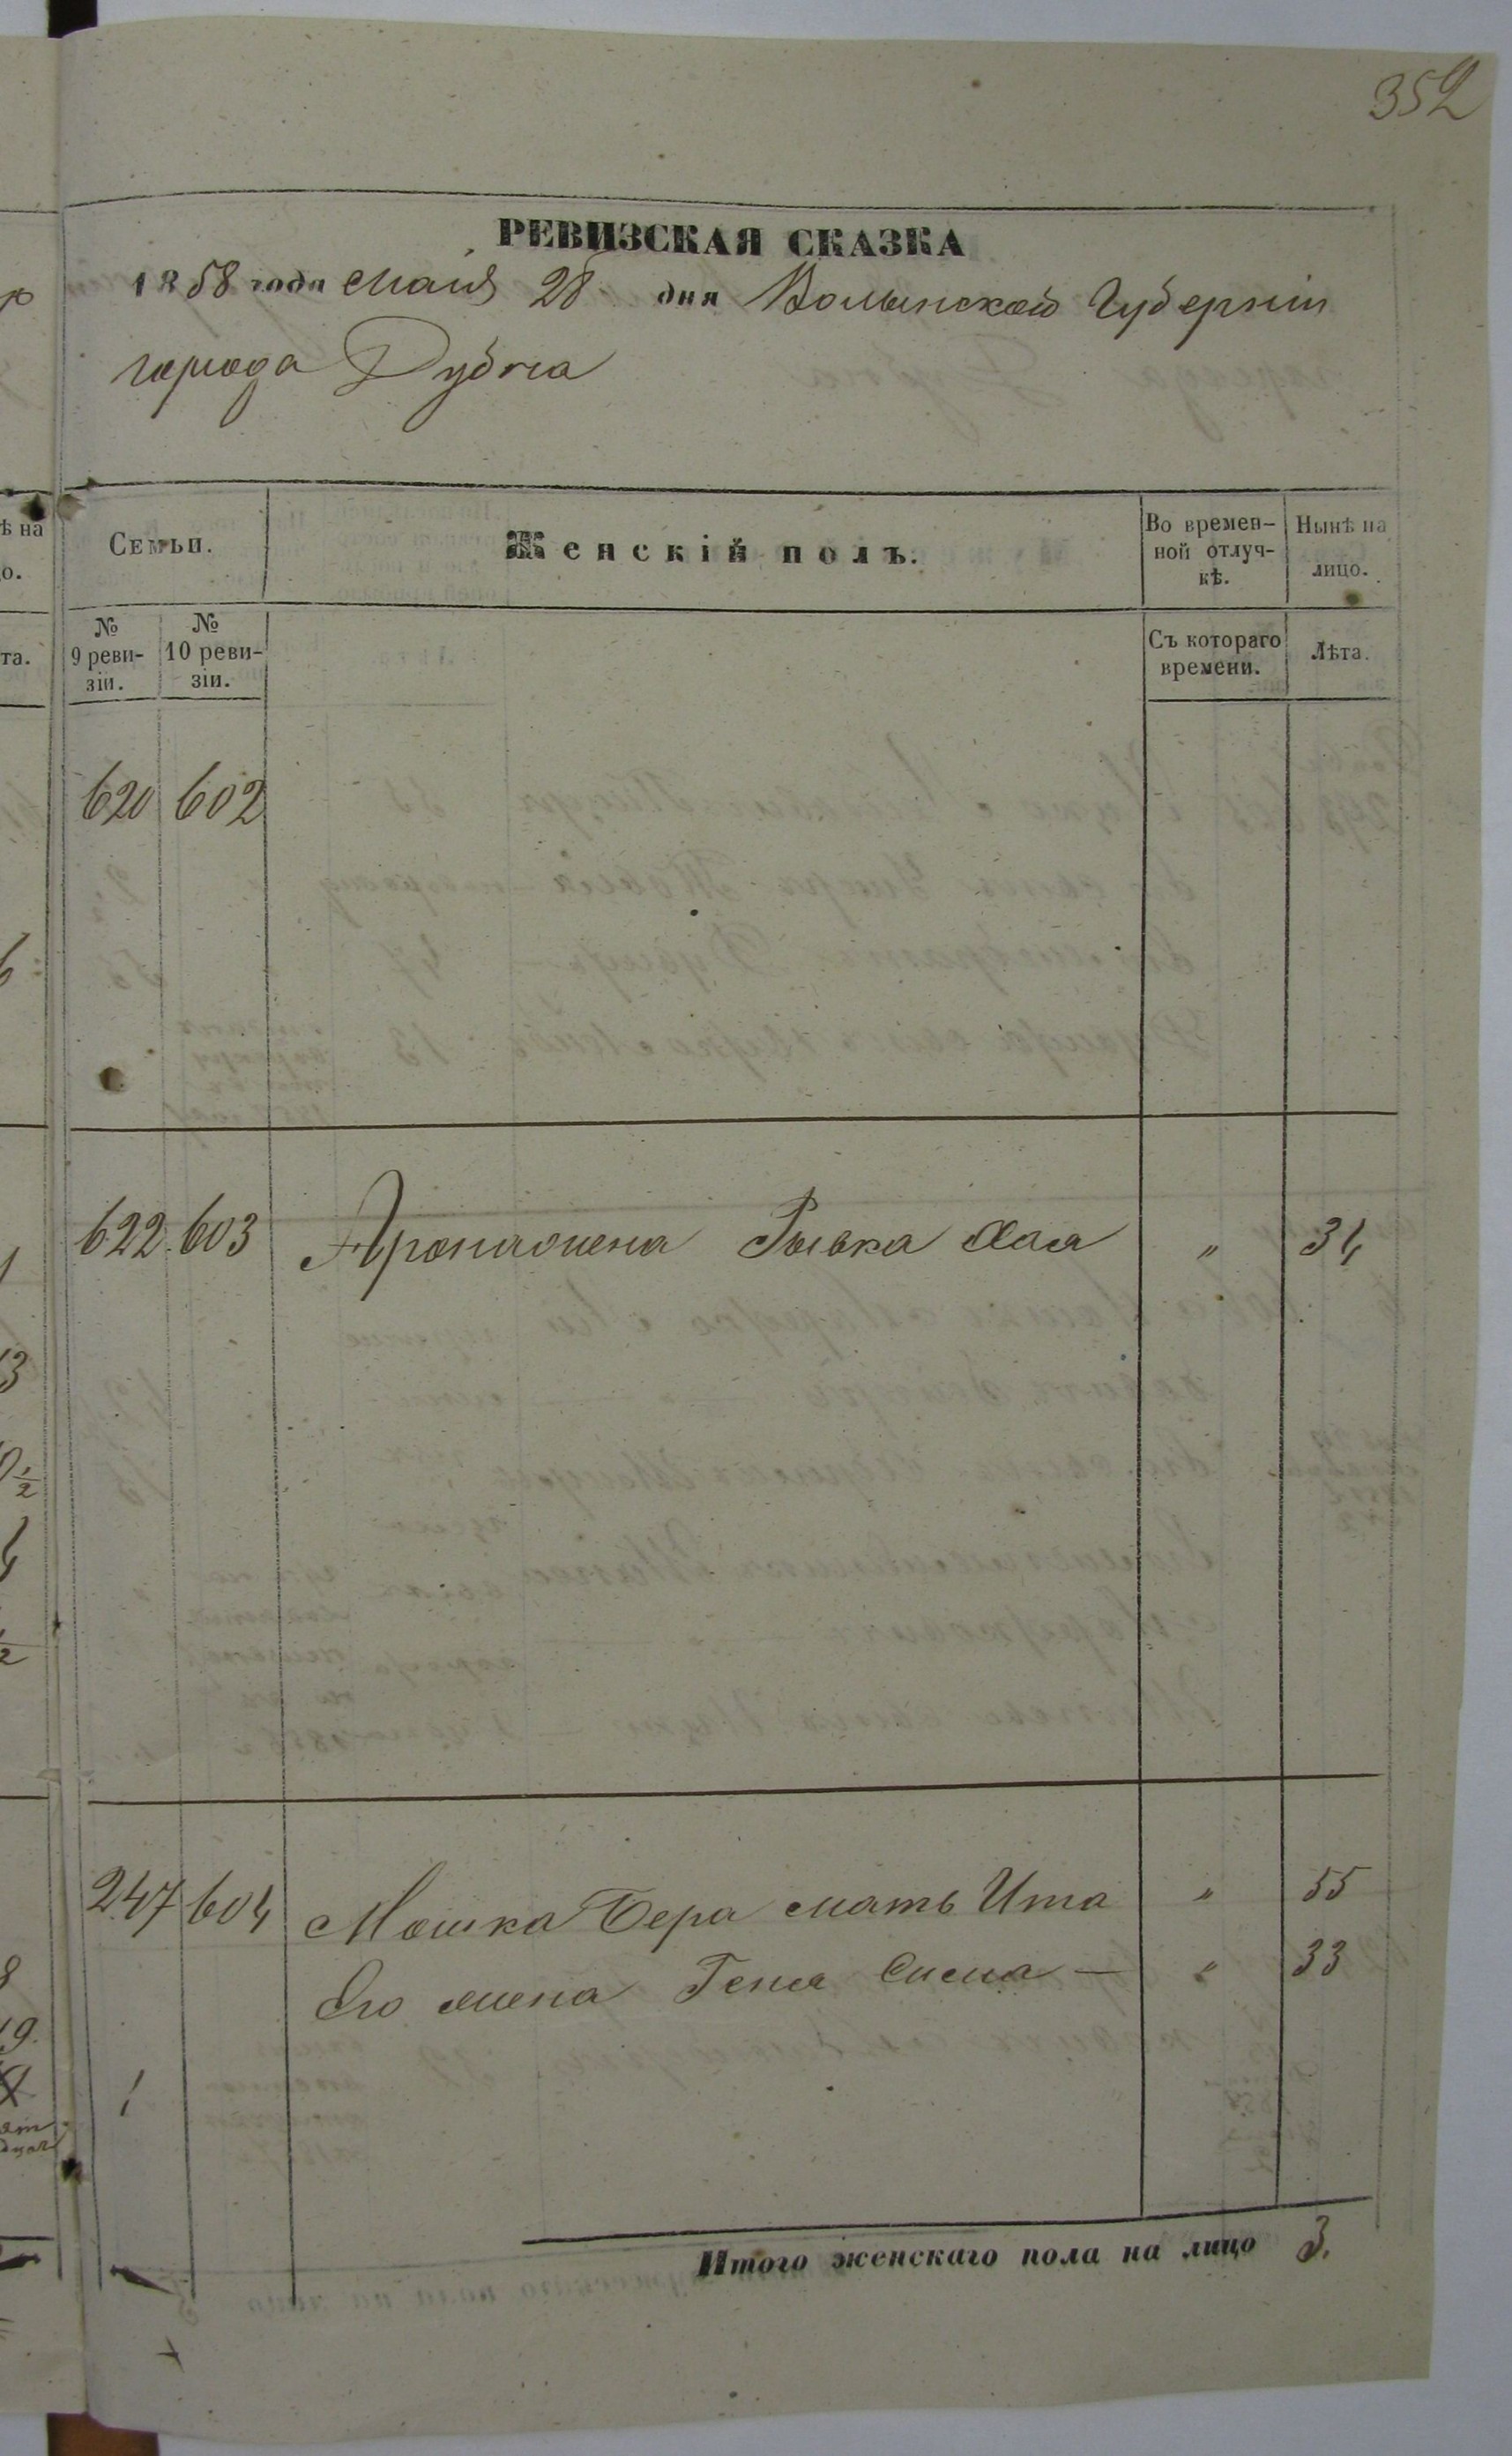 352
РЕВИЗСКАЯ СКАЗКА
1858 года Маія 28 дня Волынской Губерніи
города Дубна
Семьи.
Женскій полъ.
Во времен-
ной отлуч-
кѣ.
Нынѣ на
лицо.
№
9 реви-
зіи.
№
10 реви-
зіи.
Съ котораго
времени.
Лѣта.
620 602
622 603 Арона жена Рывка Хая " 34
247 604 Мошка Бера мать Ита " 55
Его жена Геня Сима — " 33
Итого женскаго пола на лицо 3.